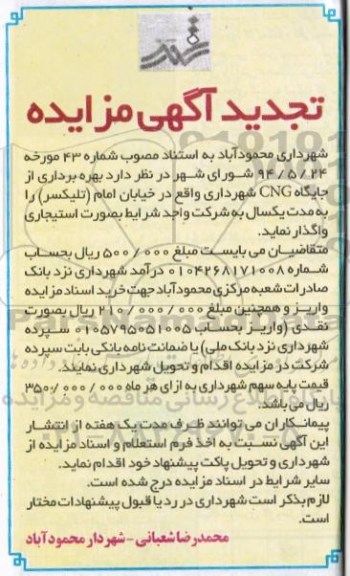 تجدید آگهی مزایده
شهرداری محمودآباد به استناد مصوب شماره ۴۳ مورخه
۹۴/۵/۲۴ شورای شهر در نظر دارد بهره برداری از
جایگاه CNG شهرداری واقع در خیابان امام (تلیکسر) را
به مدت یکسال به شرکت واجد شرایط بصورت استیجاری
واگذار نماید.
متقاضیان می بایست مبلغ ۵۰۰/۰۰۰ ریال بحساب
شماره ۰۱۰۴۲۶۸۱۷۱۰۰۸ درآمد شهرداری نزد بانک
صادرات شعبه مرکزی محمودآباد جهت خرید اسناد مزایده
واریز و همچنین مبلغ ۲۱۰/۰۰۰/۰۰۰ ریال بصورت
نقدی (واریز بحساب ۱۰۵۷۹۵۰۵۱۰۰۵ سپرده
شهرداری نزد بانک ملی) یا ضمانت نامه بانکی بابت سپرده
شرکت در مزایده اقدام و تحویل شهرداری نمایند.
قیمت پایه سهم شهرداری به ازای هر ماه ۳۵۰/۰۰۰/۰۰۰
ریال می باشد.
پیمانکاران می توانند ظرف مدت یک هفته از انتشار
این آگهی نسبت به اخذ فرم استعلام و اسناد مزایده از
شهرداری و تحویل پاکت پیشنهاد خود اقدام نماید.
سایر شرایط در اسناد مزایده درج شده است.
لازم بذکر است شهرداری در رد یا قبول پیشنهادات مختار
است.
محمدرضا شعبانی - شهردار محمودآباد